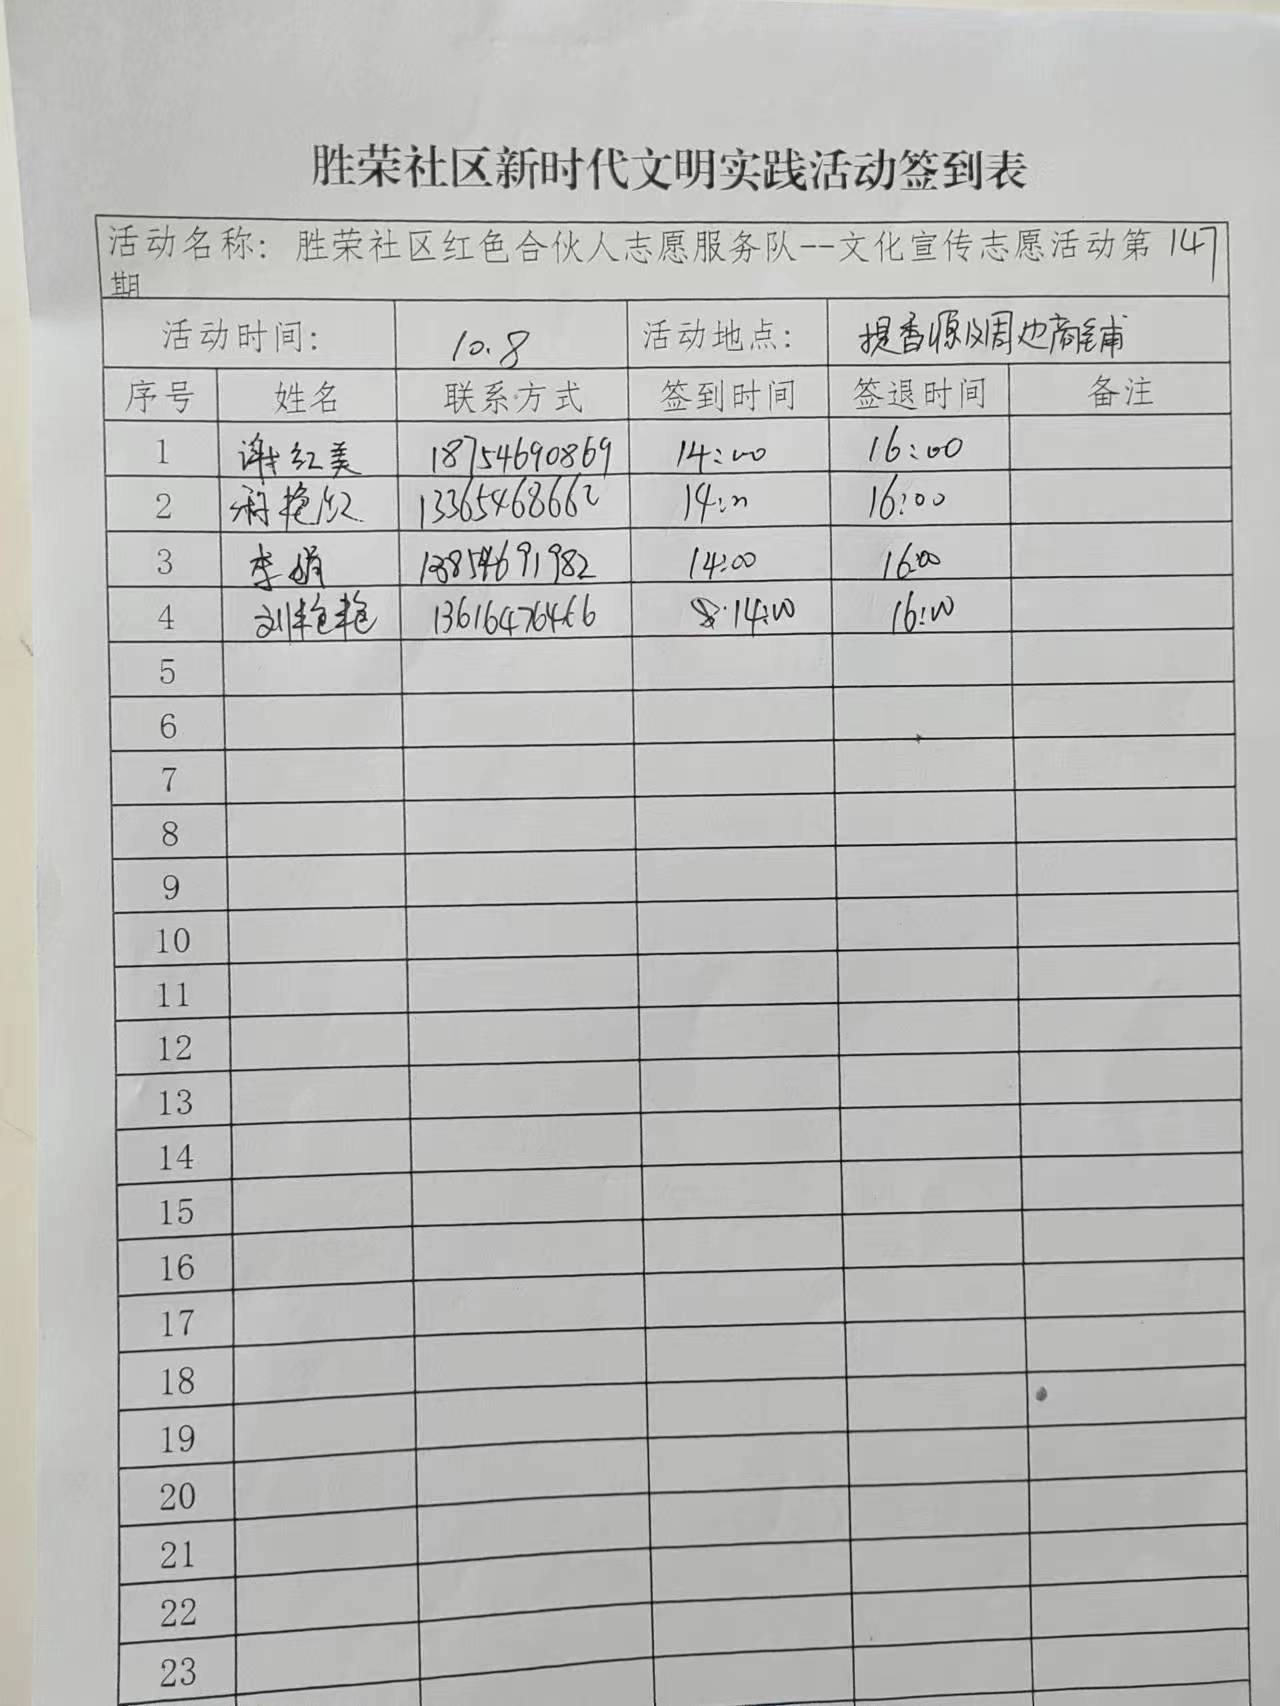 胜荣社区新时代文明实践活动签到表
活动名称：胜荣社区红色合伙人志愿服务队--文化宣传志愿活动第 147
期
活动时间： 10.8 活动地点： 提香源及周边商铺
序号 姓名 联系方式 签到时间 签退时间 备注
1 谢红美 18754690869 14:00 16:00
2 13365468662 14:00 16:00
3 李娟 13854691982 14:00 16:00
4 刘艳艳 13616476466 14:00 16:00
5
6
7
8
9
10
11
12
13
14
15
16
17
18
19
20
21
22
23